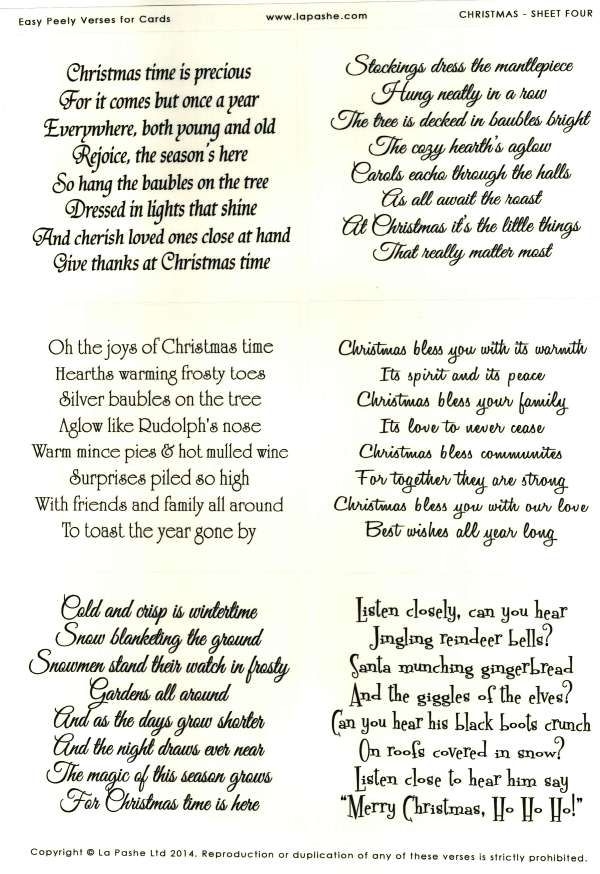 Easy Peely Verses for Cards
www.lapashe.com
CHRISTMAS - SHEET FOUR
Christmas time is precious
For it comes but once a year
Everywhere, both young and old
Rejoice, the season's here
So hang the baubles on the tree
Dressed in lights that shine
And cherish loved ones close at hand
Give thanks at Christmas time
Stockings dress the mantlepiece
Hung neatly in a row
The tree is decked in baubles bright
The cozy hearth's aglow
Carols eacho through the halls
As all await the roast
At Christmas it's the little things
That really matter most
Oh the joys of Christmas time
Hearths warming frosty toes
Silver baubles on the tree
Aglow like Rudolph's nose
Warm mince pies & hot mulled wine
Surprises piled so high
With friends and family all around
To toast the year gone by
Christmas bless you with its warmth
Its spirit and its peace
Christmas bless your family
Its love to never cease
Christmas bless communites
For together they are strong
Christmas bless you with our love
Best wishes all year long
Cold and crisp is wintertime
Snow blanketing the ground
Snowmen stand their watch in frosty
Gardens all around
And as the days grow shorter
And the night draws ever near
The magic of this season grows
For Christmas time is here
Listen closely, can you hear
Jingling reindeer bells?
Santa munching gingerbread
And the giggles of the elves?
Can you hear his black boots crunch
On roofs covered in snow?
Listen close to hear him say
"Merry Christmas, Ho Ho Ho!"
Copyright © La Pashe Ltd 2014. Reproduction or duplication of any of these verses is strictly prohibited.